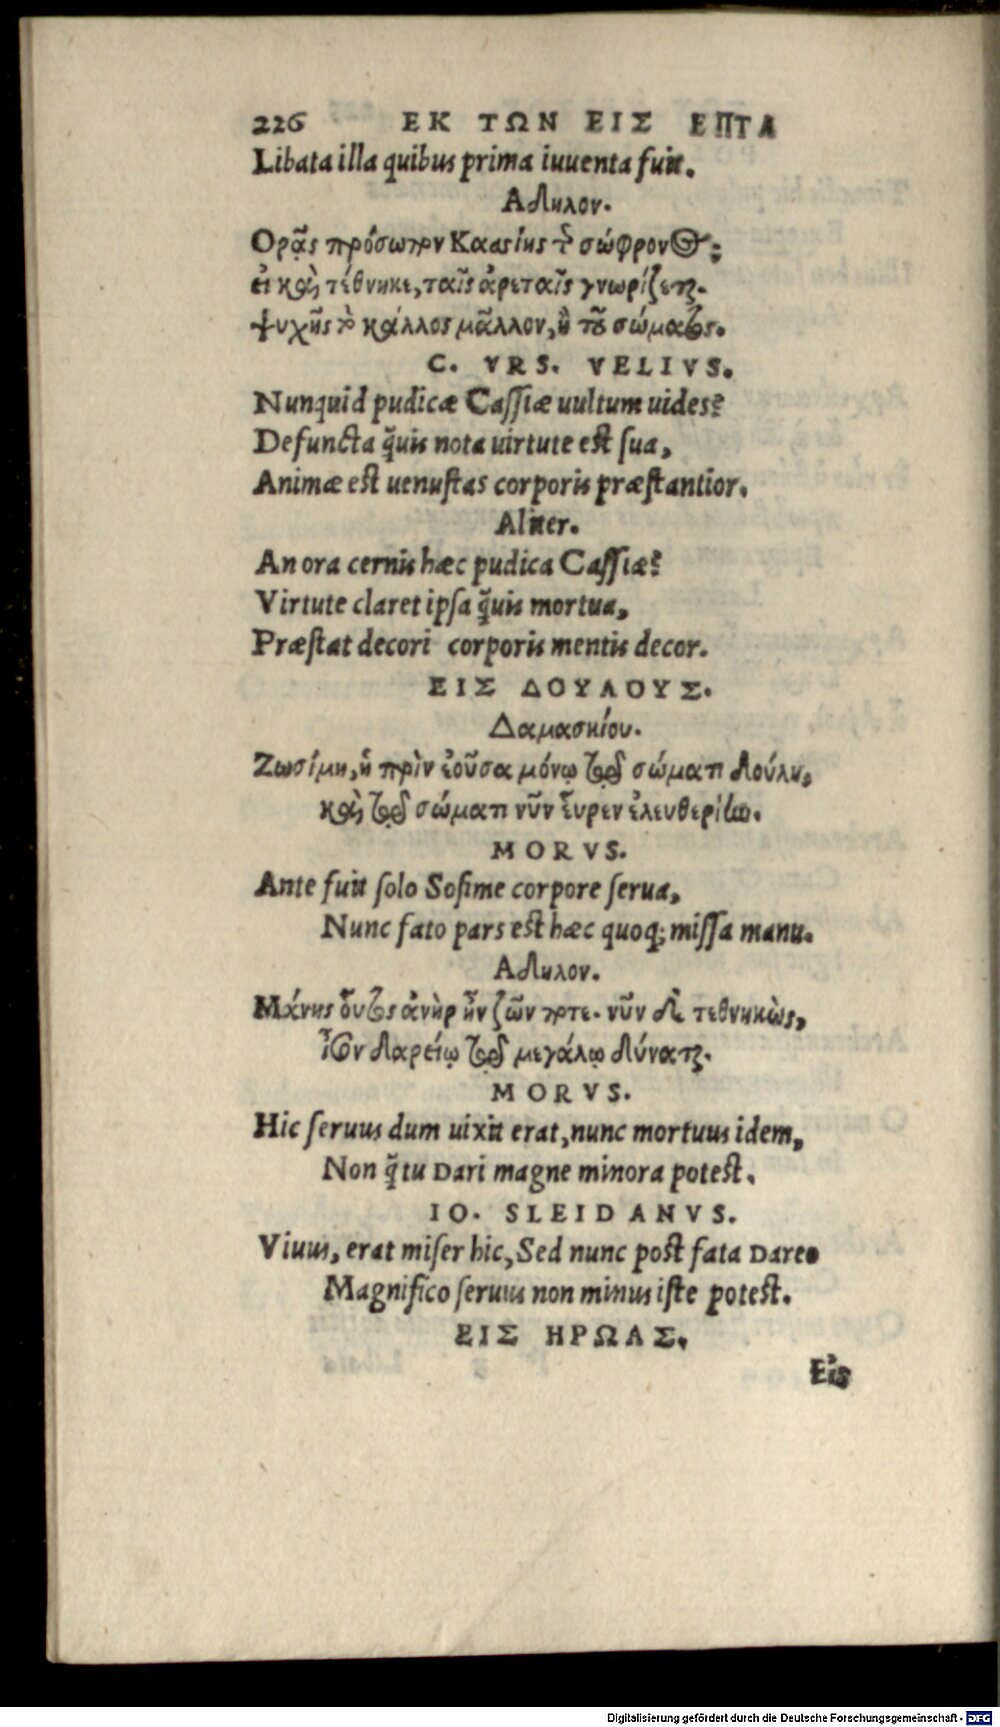 226 ΕΚ ΤΩΝ ΕΙΣ ΕΠΤΑ
Libata illa quibus prima iuuenta fuit.
Αδηλον.
Ορᾷς πρόσωπον Κασίης τῆς σώφρονος;
εἰ καὶ τέθνηκε, ταῖς ἀρεταῖς γνωρίζεται.
ψυχῆς τὸ κάλλος μᾶλλον, ἢ τοῦ σώματος.
C. VRS. VELIVS.
Nunquid pudicæ Cassiæ uultum uides?
Defuncta q̃uis nota uirtute est sua,
Animæ est uenustas corporis præstantior.
Aliter.
An ora cernis hæc pudica Cassiæ?
Virtute claret ipsa q̃uis mortua,
Præstat decori corporis mentis decor.
ΕΙΣ ΔΟΥΛΟΥΣ.
Δαμασκίου.
Ζωσίμη, ἡ πρὶν ἐοῦσα μόνῳ τῷ σώματι δούλη,
καὶ τῷ σώματι νῦν εὗρεν ἐλευθερίην.
MORVS.
Ante fuit solo Sosime corpore serua,
Nunc fato pars est hæc quoq; missa manu.
Αδηλον.
Μάνης οὗτος ἀνὴρ ἦν ζῶν ποτε. νῦν δὲ τεθνηκὼς,
ἶσον Δαρείῳ τῷ μεγάλῳ δύναται.
MORVS.
Hic seruus dum uixit erat, nunc mortuus idem,
Non q̃ tu Dari magne minora potest.
IO. SLEIDANVS.
Viuus, erat miser hic, Sed nunc post fata Dareo
Magnifico seruus non minus iste potest.
ΕΙΣ ΗΡΩΑΣ.
Εἰς
Digitalisierung gefördert durch die Deutsche Forschungsgemeinschaft - DFG